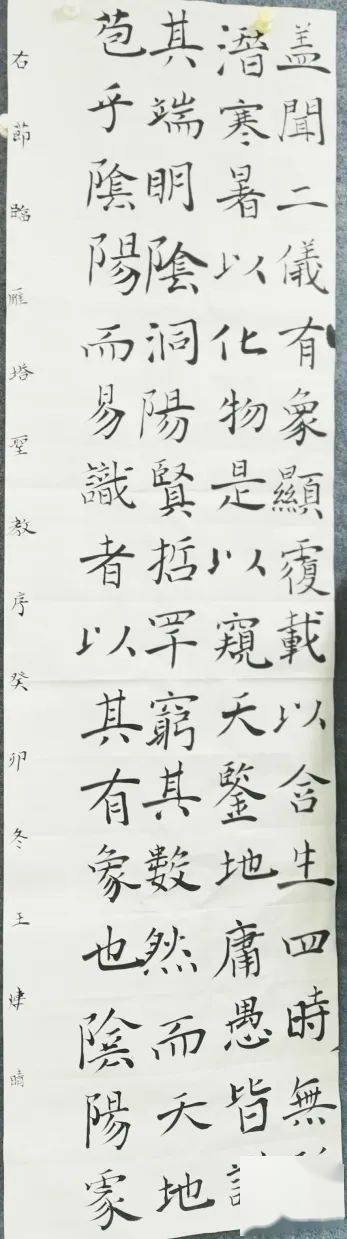 盖聞二儀有象顯覆載以含生四時無
潛寒暑以化物是以窺天鑒地庸愚皆
其端明陰洞陽賢哲罕窮其數然而天地
苞乎陰陽而易識者以其有象也陰陽處
右節臨雁塔聖教序癸卯冬王晴